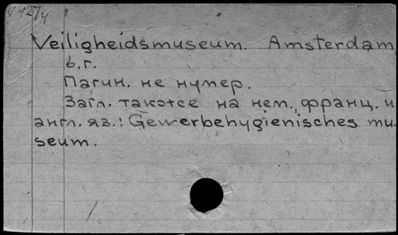 Veiligheidsmuseum. Amsterdam
б.г.
Пагин. не нумер.
Загл. также на нем., франц. и
англ. яз.: Gewerbehygienisches mu-
seum.